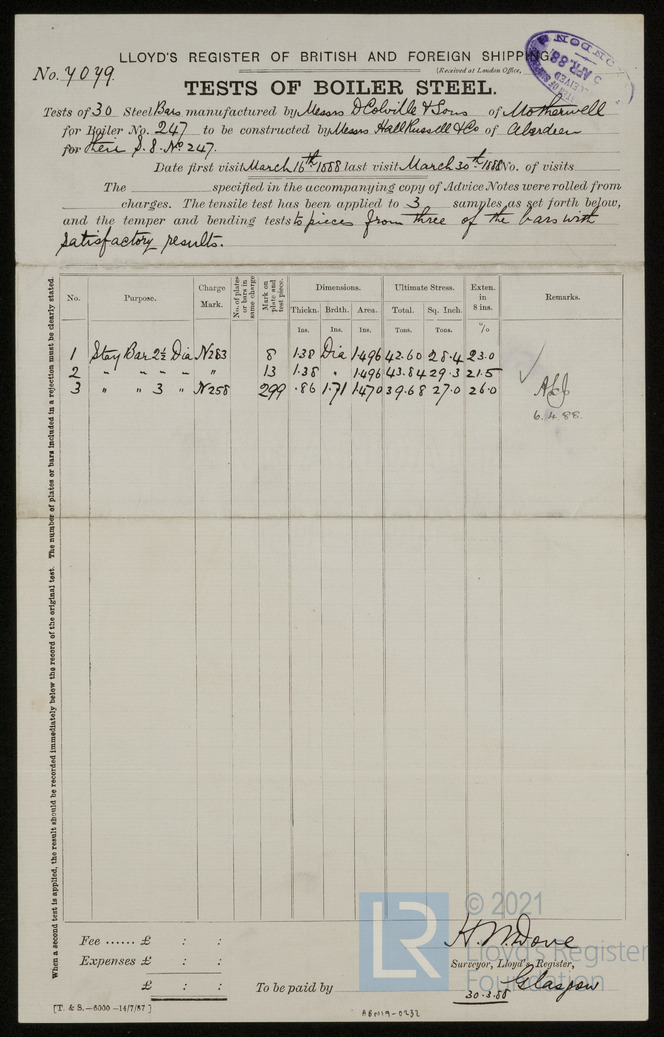 LLOYD'S REGISTER OF BRITISH AND FOREIGN SHIPPING.
No. 7079.
[Received at London Office,
TESTS OF BOILER STEEL.
Tests of 30 Steel Bars manufactured by Messrs D Colville & Sons of Motherwell
for Boiler No. 247 to be constructed by Messrs Hall Russell & Co of Aberdeen
for their S.S. No 247.
Date first visit March 16th 1888 last visit March 30th 1888 No. of visits
The specified in the accompanying copy of Advice Notes were rolled from
charges. The tensile test has been applied to 3 samples, as set forth below,
and the temper and bending tests to pieces from three of the bars with
satisfactory results.
No. Purpose. Charge Mark. No. of plates or bars in same charge Mark on plate and test piece. Dimensions. Ultimate Stress. Exten. in 8 ins. Remarks.
Thickn. Brdth. Area. Total. Sq. Inch.
Ins. Ins. Ins. Tons. Tons. %
1 Stay Bar 2½ Dia N283 8 1.38 Dia 1.496 42.60 28.4 23.0
2 " " " " " 13 1.38 " 1.496 43.84 29.3 21.5
3 " " 3 " N258 299 .86 1.71 1.470 39.68 27.0 26.0
6.4.88.
When a second test is applied, the result should be recorded immediately below the record of the original test. The number of plates or bars included in a rejection must be clearly stated.
Fee ...... £ : :
Expenses £ : :
£ : :
To be paid by
H. M. Dove
Surveyor, Lloyd's Register,
Glasgow
30.3.88
[T. & S.—6000—14/7/87]
ABE019-0232
LR
© 2021
Lloyd's Register
Foundation